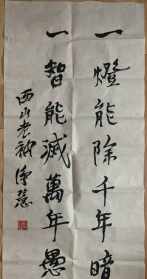 一燈能除千年暗
一智能滅萬年愚
西山老衲傳慧